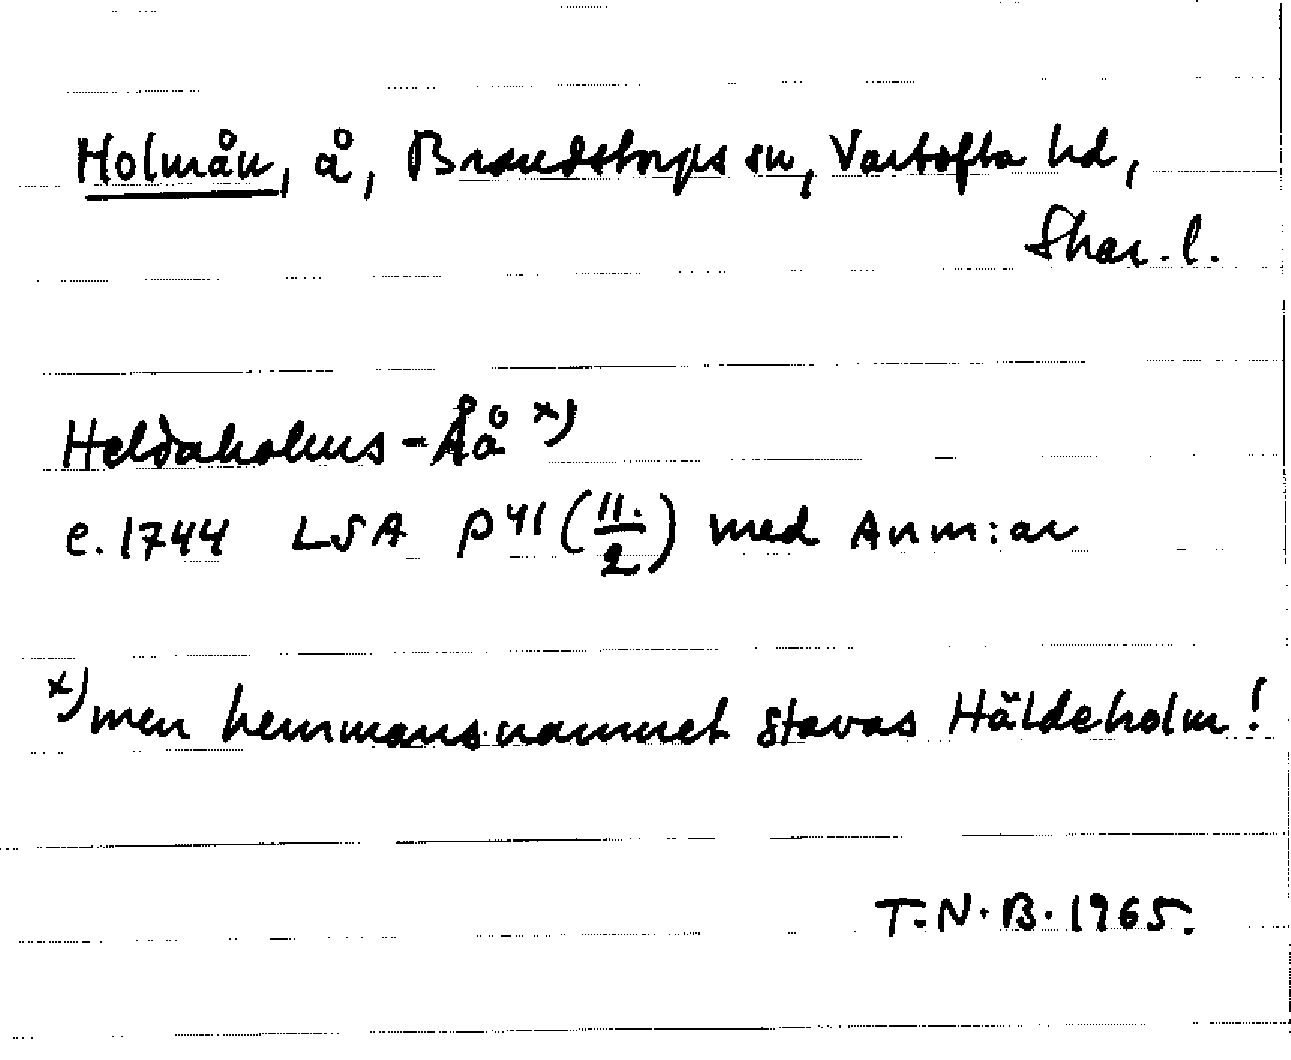 Holmån, å, Brandstorps sn, Vartofta hd,
Skar. l.
Heldaholms-Åå x)
e. 1744 LSA P 41 (11./2) med Anm:ar
x) men hemmansnamnet stavas Häldeholm!
T.N.B. 1965.